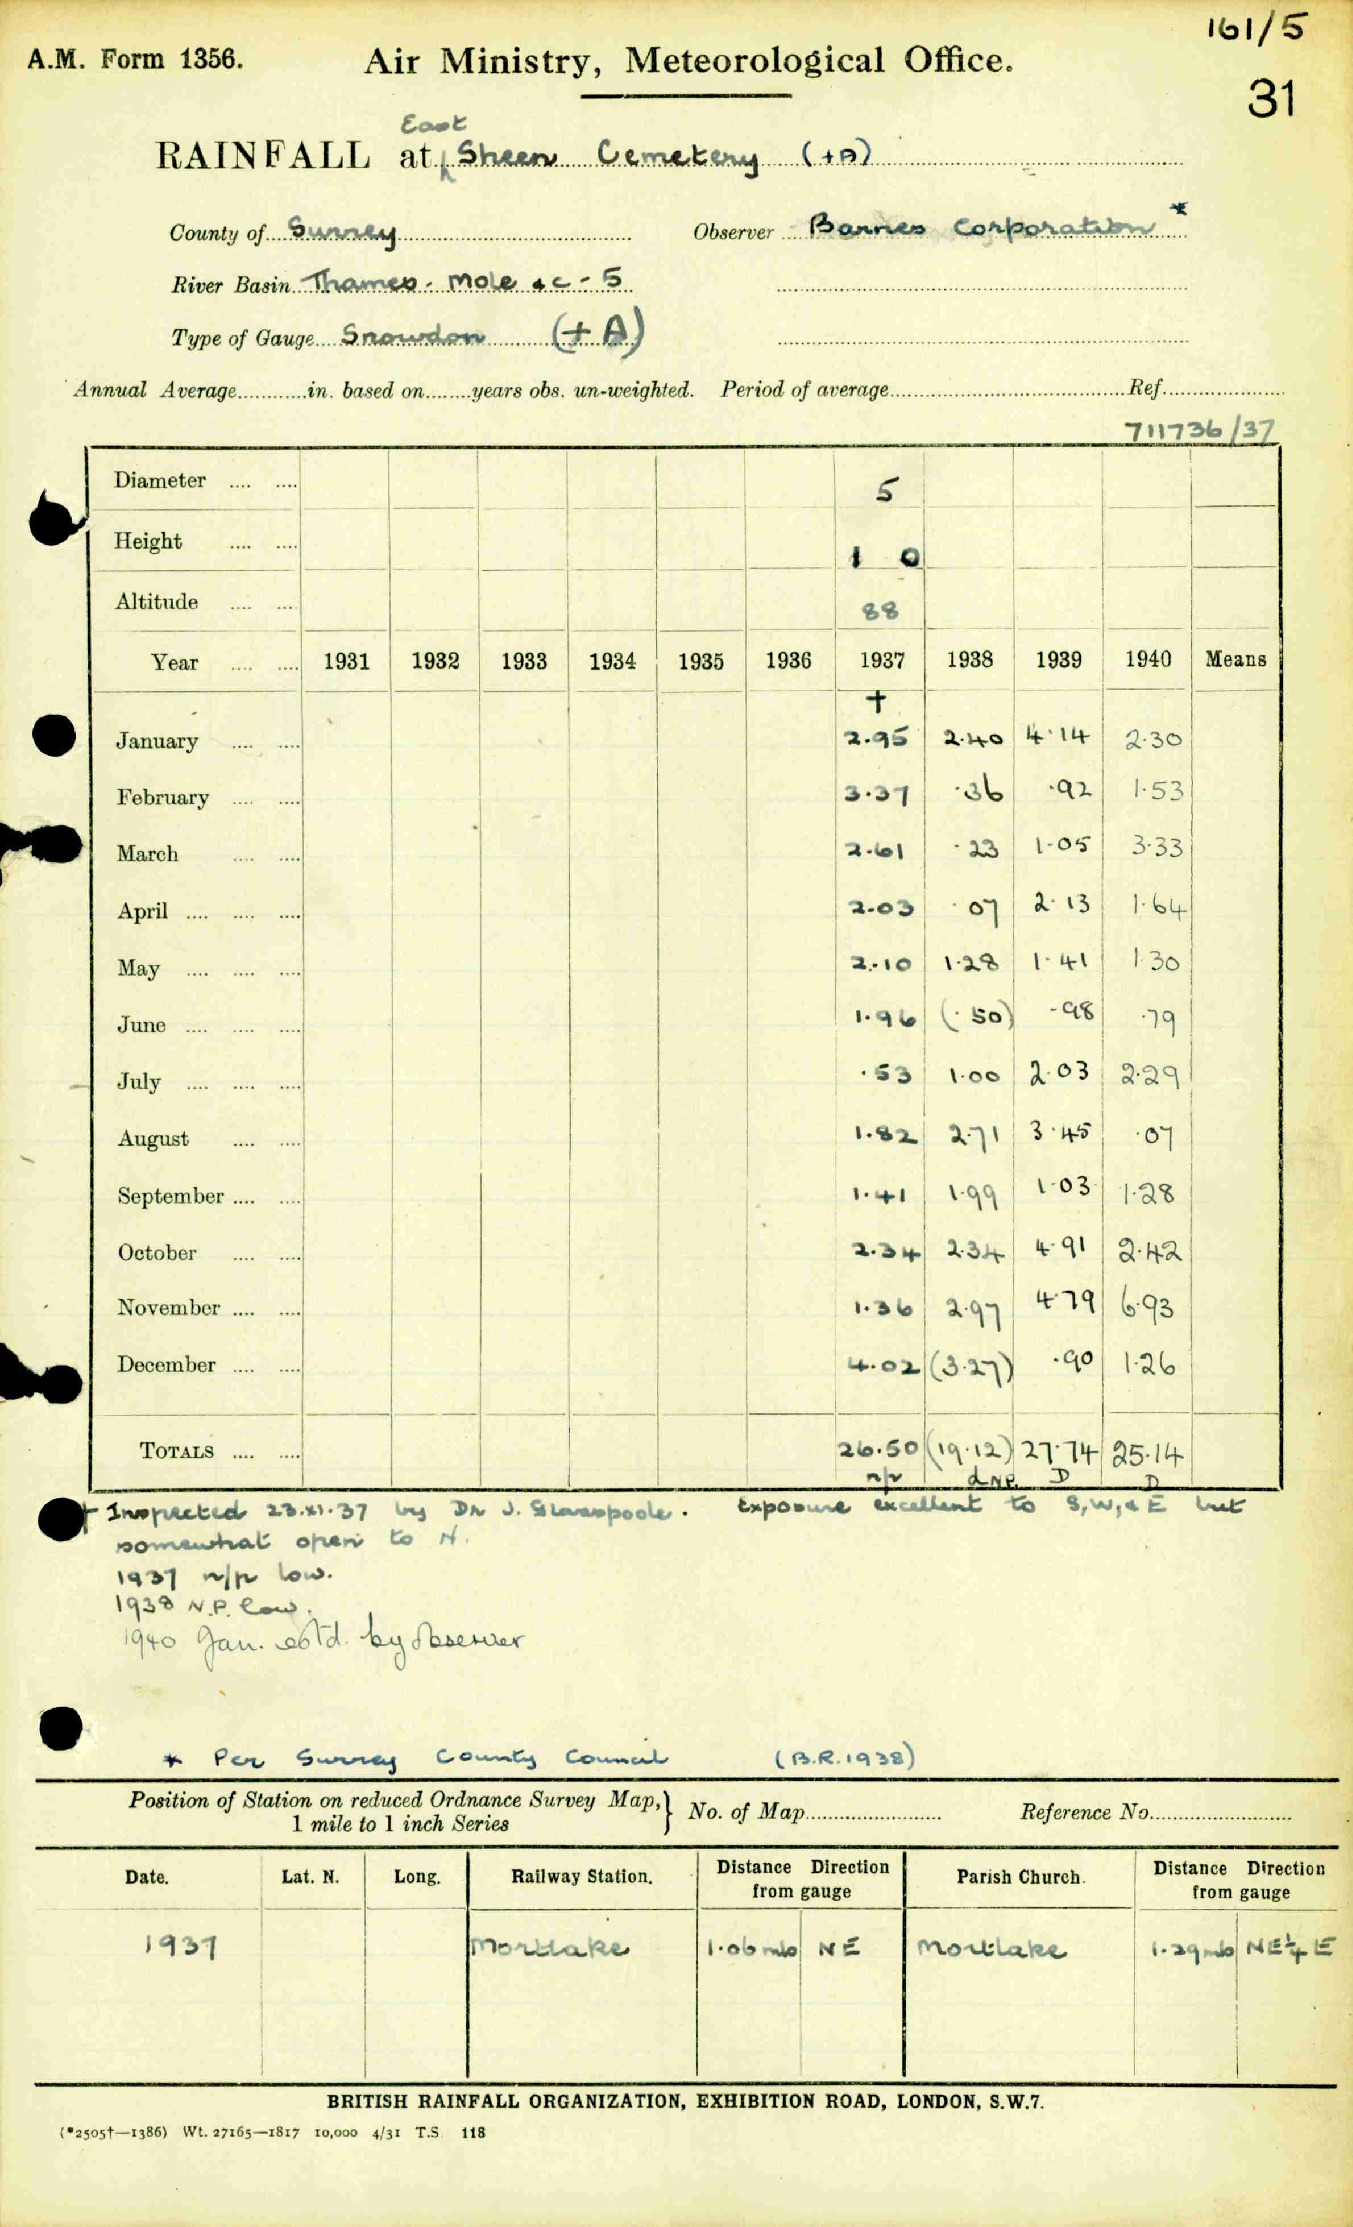 161/5
A.M. Form 1356. Air Ministry, Meteorological Office.
31
East
RAINFALL at Sheen Cemetery (+A)
County of Surrey Observer Barnes Corporation *
River Basin Thames - Mole &c - 5
Type of Gauge Snowdon (+A)
Annual Average............in. based on........years obs. un-weighted. Period of average..........Ref..........
711736/37
Diameter .... .... 5
Height .... .... 1 0
Altitude .... .... 88
Year .... .... 1931 1932 1933 1934 1935 1936 1937 1938 1939 1940 Means
†
January .... .... 2.95 2.40 4.14 2.30
February .... .... 3.37 .36 .92 1.53
March .... .... 2.61 .23 1.05 3.33
April .... .... .... 2.03 .07 2.13 1.64
May .... .... .... 2.10 1.28 1.41 1.30
June .... .... .... 1.96 (.50) .98 .79
July .... .... .... .53 1.00 2.03 2.29
August .... .... 1.82 2.71 3.45 .07
September .... .... 1.41 1.99 1.03 1.28
October .... .... 2.34 2.34 4.91 2.42
November .... .... 1.36 2.97 4.79 6.93
December .... .... 4.02 (3.27) .90 1.26
TOTALS .... .... 26.50 (19.12) 27.74 25.14
n/p d N.P. D D
† Inspected 23.XI.37 by Dr J. Glasspoole. Exposure excellent to S, W, & E but
somewhat open to N.
1937 n/p low.
1938 N.P. low.
1940 Jan. estd. by observer
* Per Surrey County Council (B.R. 1938)
Position of Station on reduced Ordnance Survey Map, } No. of Map.......... Reference No..........
1 mile to 1 inch Series
Date. Lat. N. Long. Railway Station. Distance Direction Parish Church. Distance Direction
from gauge from gauge
1937 Mortlake 1.06 mls NE Mortlake 1.29 mls NE¼E
BRITISH RAINFALL ORGANIZATION, EXHIBITION ROAD, LONDON, S.W.7.
(*2505†—1386) Wt. 27165—1817 10,000 4/31 T.S. 118